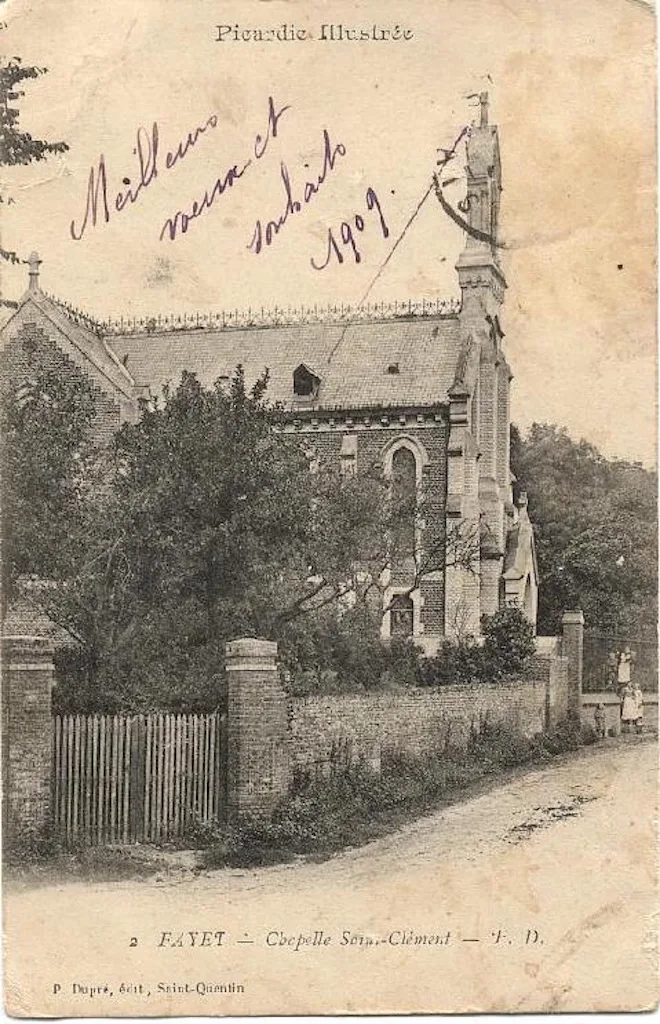 Picardie Illustrée
Meilleurs
voeux et
souhaits
1909.
2 FAYET — Chapelle Saint-Clément — P. D.
P. Dupré, édit, Saint-Quentin